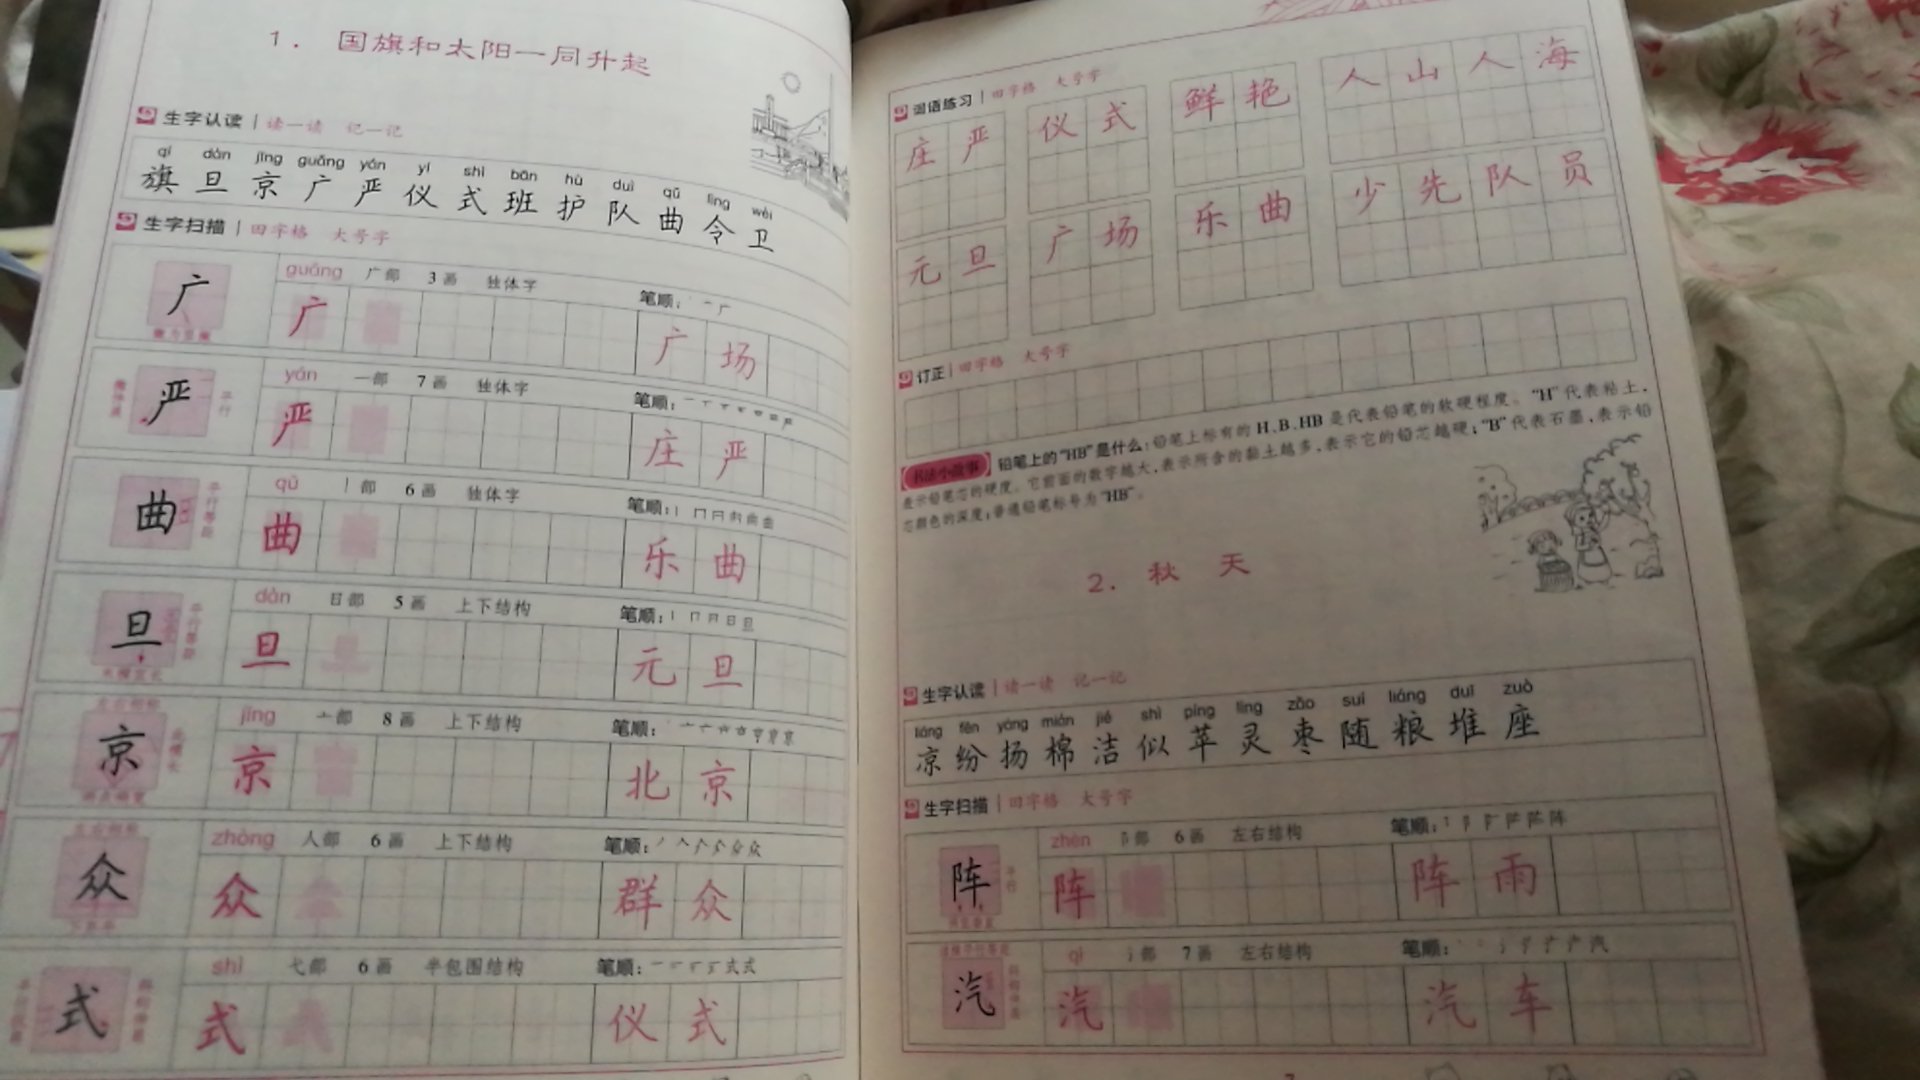 1. 国旗和太阳一同升起
生字认读 读一读 记一记
qí dàn jīng guǎng yán yí shì bān hù duì qǔ lìng wèi
旗 旦 京 广 严 仪 式 班 护 队 曲 令 卫
生字扫描 田字格 大号字
广 guǎng 广部 3画 独体字 笔顺:
广 广场
严 yán 一部 7画 独体字 笔顺:
平行
严 庄严
曲 qǔ 丨部 6画 独体字 笔顺:
平行等距
曲 乐曲
旦 dàn 日部 5画 上下结构 笔顺:
平行等距
旦 元旦
京 jīng 亠部 8画 上下结构 笔顺:
左右相称
京 北京
众 zhòng 人部 6画 上下结构 笔顺:
左右相称
众 群众
式 shì 弋部 6画 半包围结构 笔顺:
式 仪式
词语练习 田字格 大号字
庄严 仪式 鲜艳 人山人海
元旦 广场 乐曲 少先队员
订正 田字格 大号字
书法小故事 铅笔上的“HB”是什么:铅笔上标有的 H、B、HB 是代表铅笔的软硬程度。“H”代表粘土,
表示铅笔芯的硬度。它前面的数字越大,表示所含的黏土越多,表示它的铅芯越硬;“B”代表石墨,表示铅
芯颜色的深度;普通铅笔标号为“HB”。
2. 秋 天
生字认读 读一读 记一记
liáng fēn yáng mián jié shì píng líng zǎo suí liáng duī zuò
凉 纷 扬 棉 洁 似 苹 灵 枣 随 粮 堆 座
生字扫描 田字格 大号字
阵 zhèn 阝部 6画 左右结构 笔顺:
平行
阵 阵雨
汽 qì 氵部 7画 左右结构 笔顺:
汽 汽车